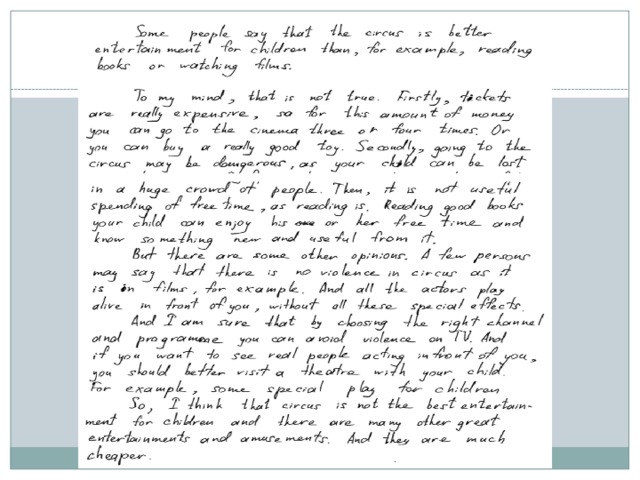 Some people say that the circus is better
entertainment for children than, for example, reading
books or watching films.
To my mind, that is not true. Firstly, tickets
are really expensive, so for this amount of money
you can go to the cinema three or four times. Or
you can buy a really good toy. Secondly, going to the
circus may be dangerous, as your child can be lost
in a huge crowd of people. Then, it is not useful
spending of free time, as reading is. Reading good books
your child can enjoy his or her free time and
know something new and useful from it.
But there are some other opinions. A few persons
may say that there is no violence in circus as it
is in films, for example. And all the actors play
alive in front of you, without all these special effects.
And I am sure that by choosing the right channel
and programme you can avoid violence on TV. And
if you want to see real people acting in front of you,
you should better visit a theatre with your child.
For example, some special play for children
So, I think that circus is not the best entertain-
ment for children and there are many other great
entertainments and amusements. And they are much
cheaper.